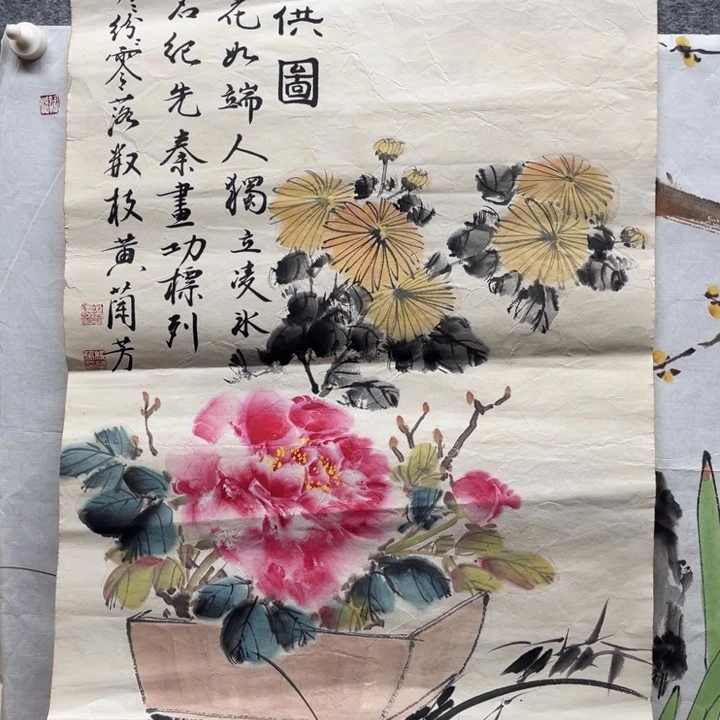 供圖
花如端人獨立凌冰
石紀先秦畫功標列
紛零落數枝黄蘭芳